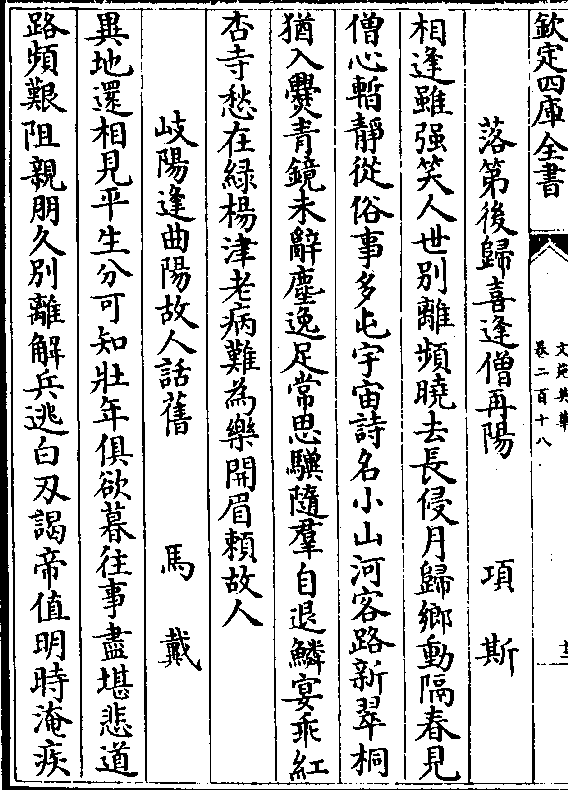 欽定四庫全書
文苑英華
卷二百十八
十三
落第後歸喜逢僧再陽 項斯
相逢雖强笑人世别離頻曉去長侵月歸鄉動隔春見
僧心暫靜從俗事多屯宇宙詩名小山河客路新翠桐
猶入爨青鏡未辭塵逸足常思驥隨羣自退鱗宴乖紅
杏寺愁在緑楊津老病難為樂開眉賴故人
岐陽逢曲陽故人話舊 馬戴
異地還相見平生分可知壯年俱欲暮往事盡堪悲道
路頻艱阻親朋久别離解兵逃白刃謁帝值明時淹疾